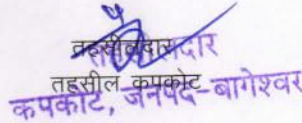 तहसीलदार
तहसील कपकोट
कपकोट, जनपद-बागेश्वर